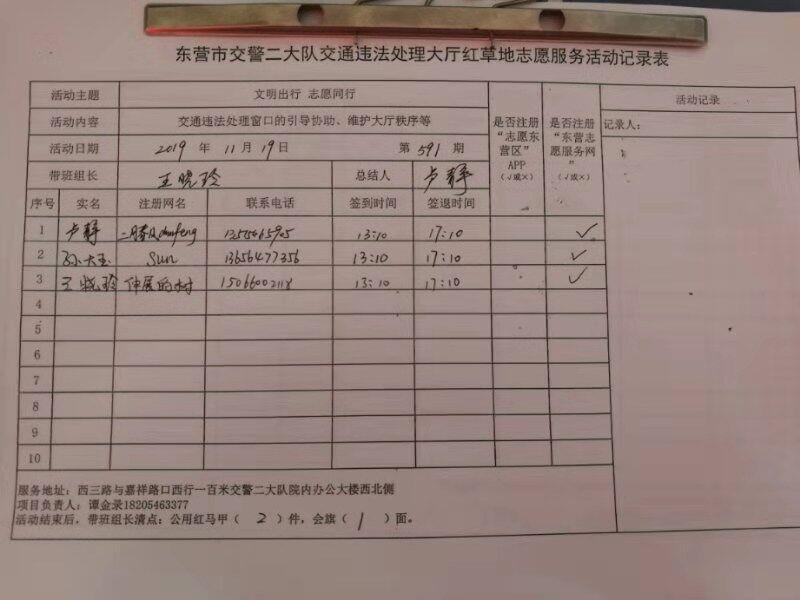 东营市交警二大队交通违法处理大厅红草地志愿服务活动记录表
活动主题 文明出行 志愿同行
活动内容 交通违法处理窗口的引导协助、维护大厅秩序等
活动日期 2019 年 11 月 19 日 第 591 期
带班组长 王晓玲 总结人 卢静
是否注册“志愿东营区”APP（√或×）
是否注册“东营志愿服务网”（√或×）
活动记录
记录人：
序号 实名 注册网名 联系电话 签到时间 签退时间
1 卢静 13:10 17:10 ✓
2 孙大玉 Sun 13656477356 13:10 17:10 ✓
3 王晓玲 伸展的树 15066002118 13:10 17:10 ✓
4
5
6
7
8
9
10
服务地址：西三路与嘉祥路口西行一百米交警二大队院内办公大楼西北侧
项目负责人：谭金录18205463377
活动结束后，带班组长清点：公用红马甲（ 2 ）件，会旗（ 1 ）面。